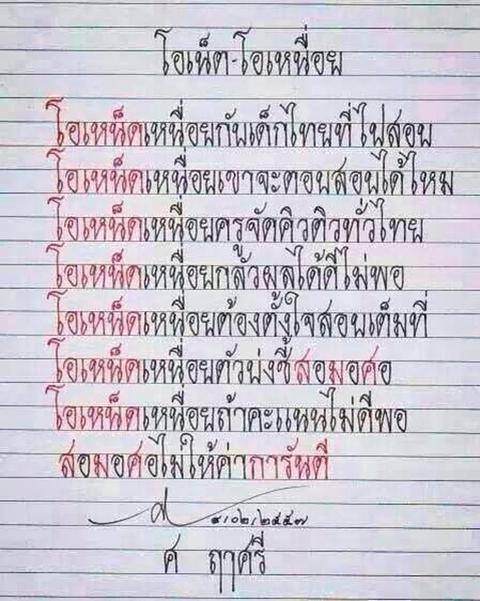 โอเน็ต-โอเหนื่อย
โอเหน็ดเหนื่อยกับเด็กไทยที่ไปสอบ
โอเหน็ดเหนื่อยเขาจะตอบสอบได้ไหม
โอเหน็ดเหนื่อยครูจัดคิวติวทั่วไทย
โอเหน็ดเหนื่อยกลัวผลได้ดีไม่พอ
โอเหน็ดเหนื่อยต้องตั้งใจสอบเต็มที่
โอเหน็ดเหนื่อยตัวบ่งชี้สอมอศอ
โอเหน็ดเหนื่อยถ้าคะแนนไม่ดีพอ
สอมอศอไม่ให้ค่าการันตี
๙/๐๒/๒๕๕๗
ศ ฤาศรี